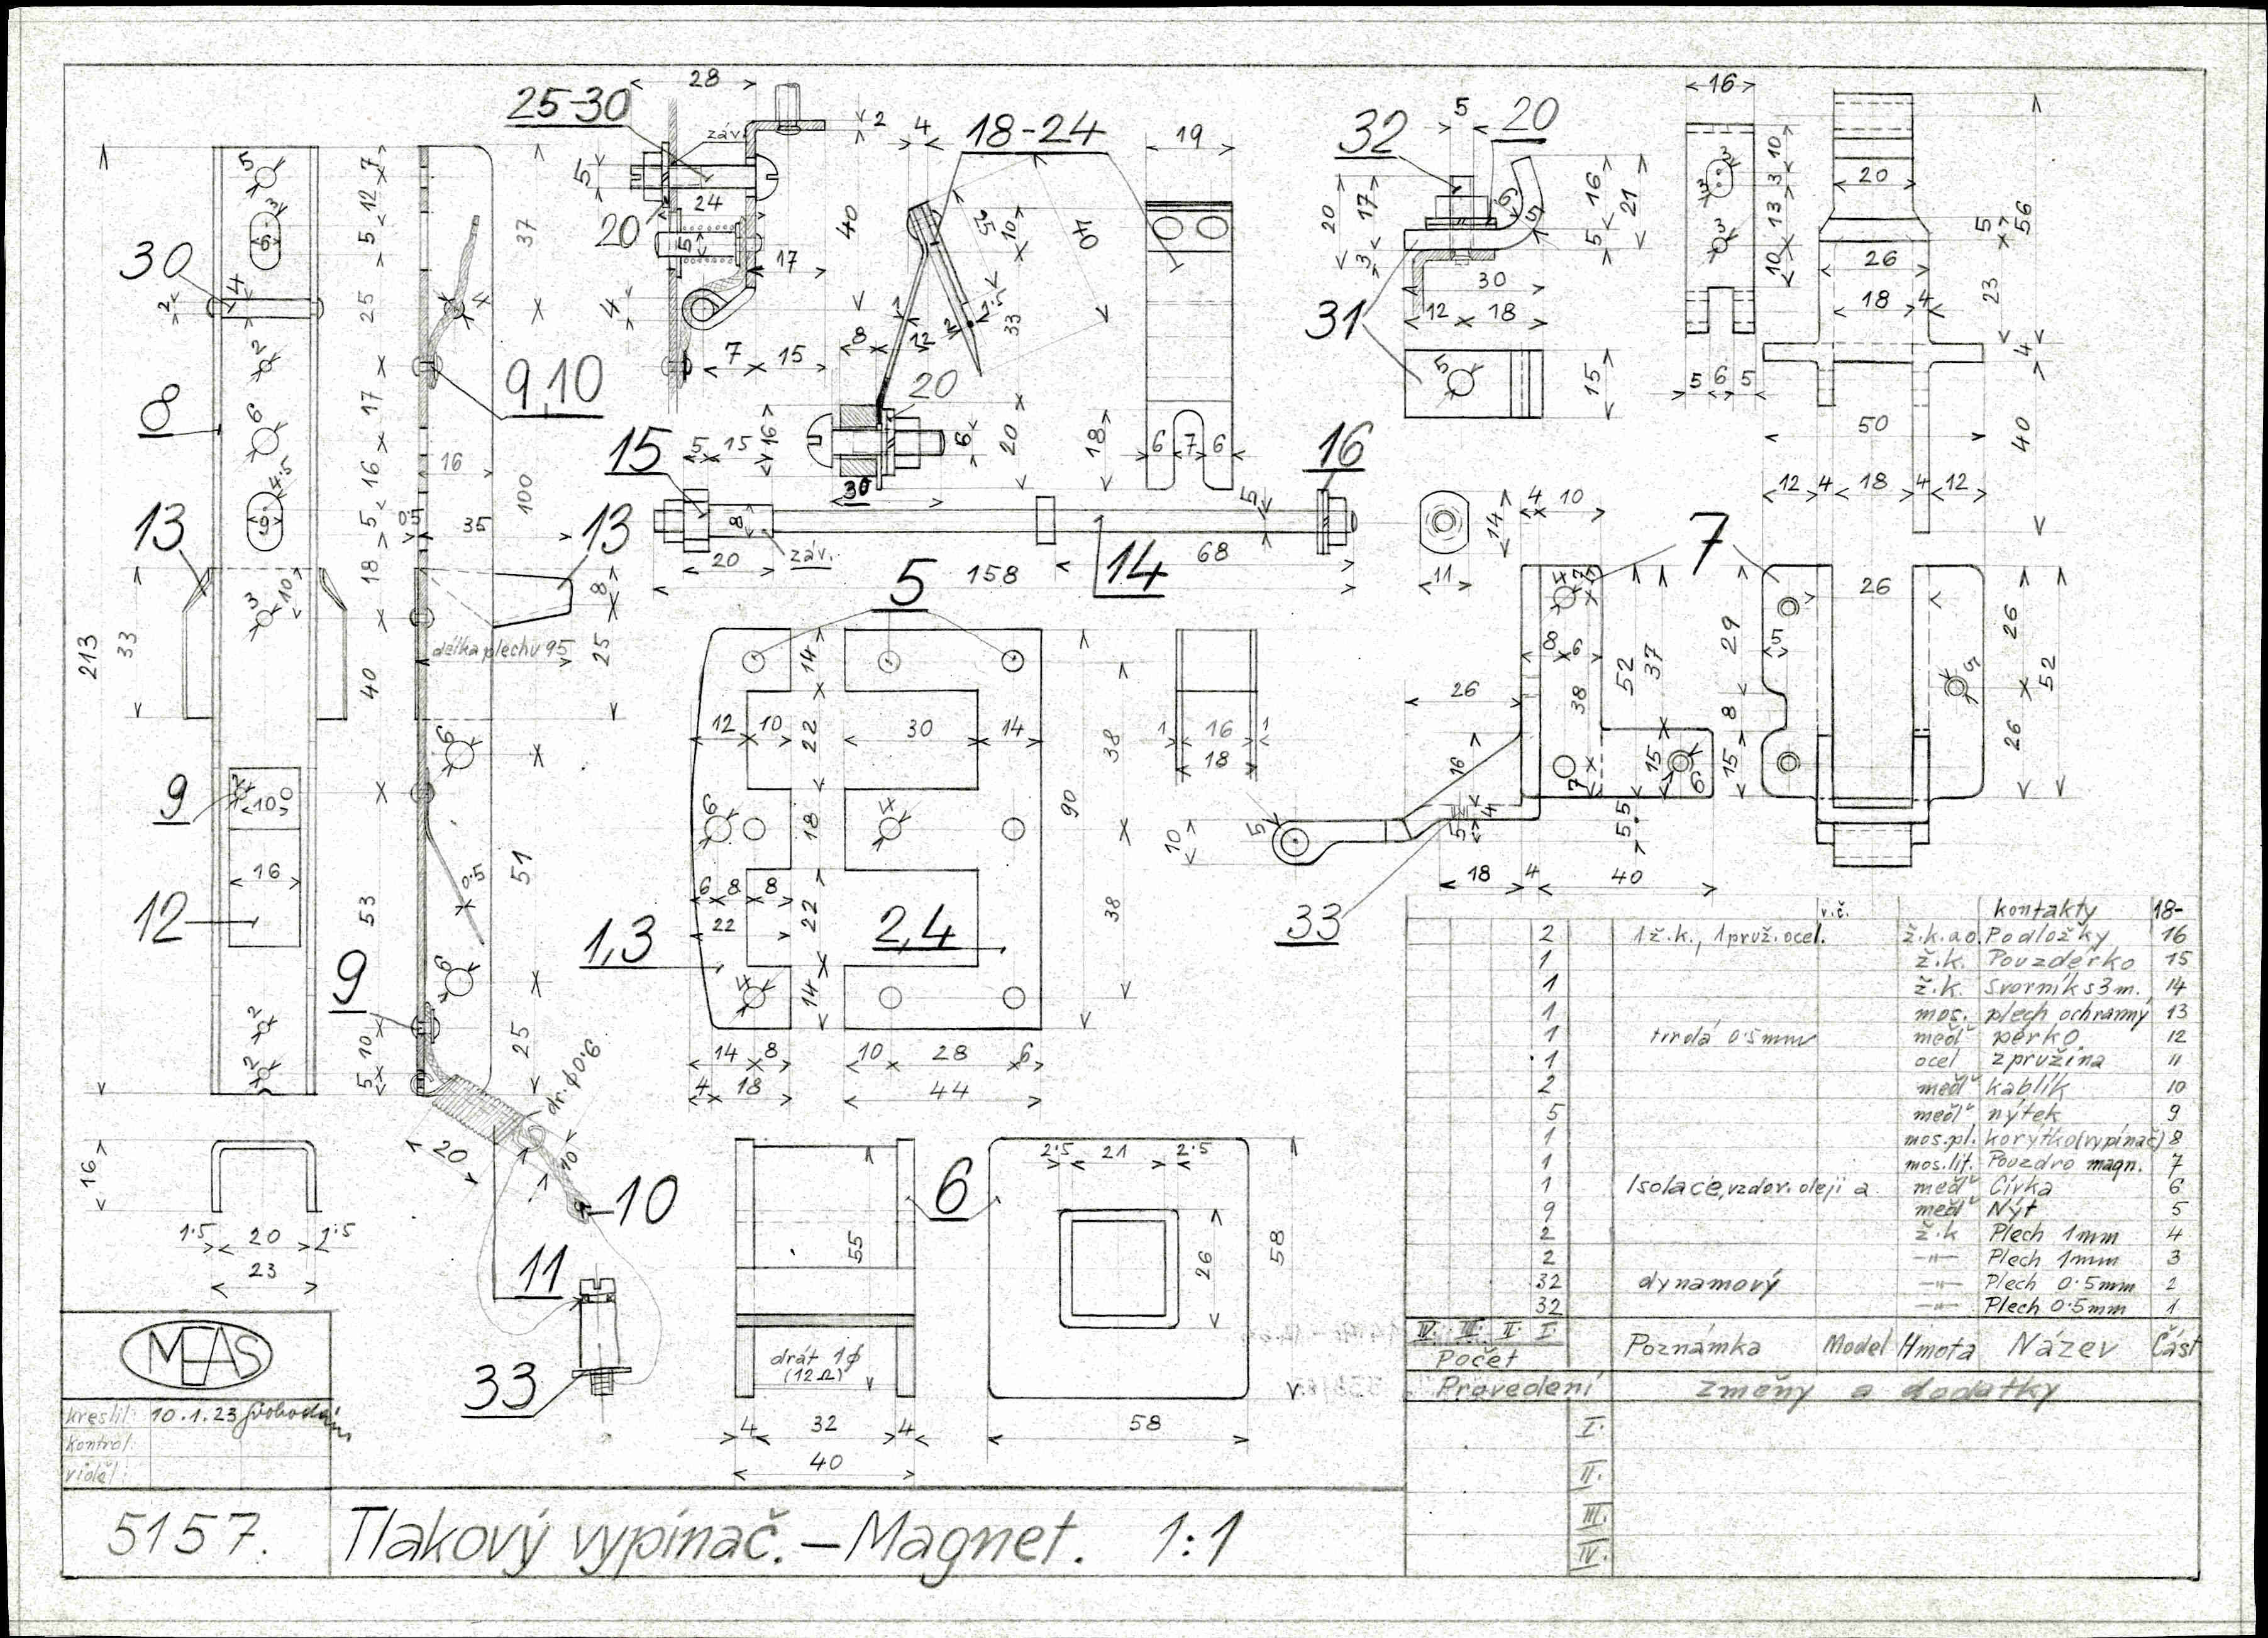 28
25-30
záv.
2
4
18-24
19
32
5
20
16
5
3
6
30
4
2
2
6
4.5
9
13
3
10
8
213
33
9
7
10
16
12
2
2
7
12
5
25
17
16
5
18
40
53
10
5
37
4
9,10
16
100
0.5
35
13
8
25
délka plechu 95
6
6
0.5
51
25
9
dr. φ 0.6
20
10
10
11
33
5
20
24
5
17
4
7
15
40
25
10
40
33
1
8
12
2
1.5
20
15
5
15
16
6
20
30
18
6
7
6
16
8
20
záv.
158
14
68
5
14
11
20
17
3
6
5
16
5
21
30
12
18
31
5
15
16
3
3
10
3
13
10
5
6
5
20
26
18
4
5
7
56
23
4
50
40
12
4
18
4
12
4
10
7
4
7
8
6
52
37
38
29
8
15
15
6
7
26
5
5
26
26
52
26
16
10
5
5
4
5.5
18
4
40
33
5
14
12
10
22
30
14
6
4
18
38
90
6
8
8
22
22
1,3
2,4
4
14
38
14
8
4
18
10
28
6
44
1
16
1
18
6
55
drát 1φ
(12Ω)
4
32
4
40
2.5
21
2.5
26
58
58
16
1.5
20
1.5
23
v.č.
kontakty 18-
2 1 ž.k., 1 pruž. ocel. ž.k. a o. Podložky 16
1 ž.k. Pouzderko 15
1 ž.k. Svorník s 3 m. 14
1 mos. plech ochranný 13
1 tvrdá 0.5mm měď perko 12
1 ocel zpružina 11
2 měď kablík 10
5 měď nýtek 9
1 mos.pl. korýtko(vypínač) 8
1 mos.lit. Pouzdro magn. 7
1 Isolace, vzdor. oleji a měď Cívka 6
9 měď Nýt 5
2 ž.k Plech 1mm 4
2 —"— Plech 1mm 3
32 dynamový —"— Plech 0.5mm 2
32 —"— Plech 0.5mm 1
IV. III. II. I.
Počet Poznámka Model Hmota Název Část
Provedení změny a dodatky
I.
II.
III.
IV.
MEAS
kreslil: 10.1.23 Svoboda
kontrol.
viděl:
5157. Tlakový vypínač. – Magnet. 1:1